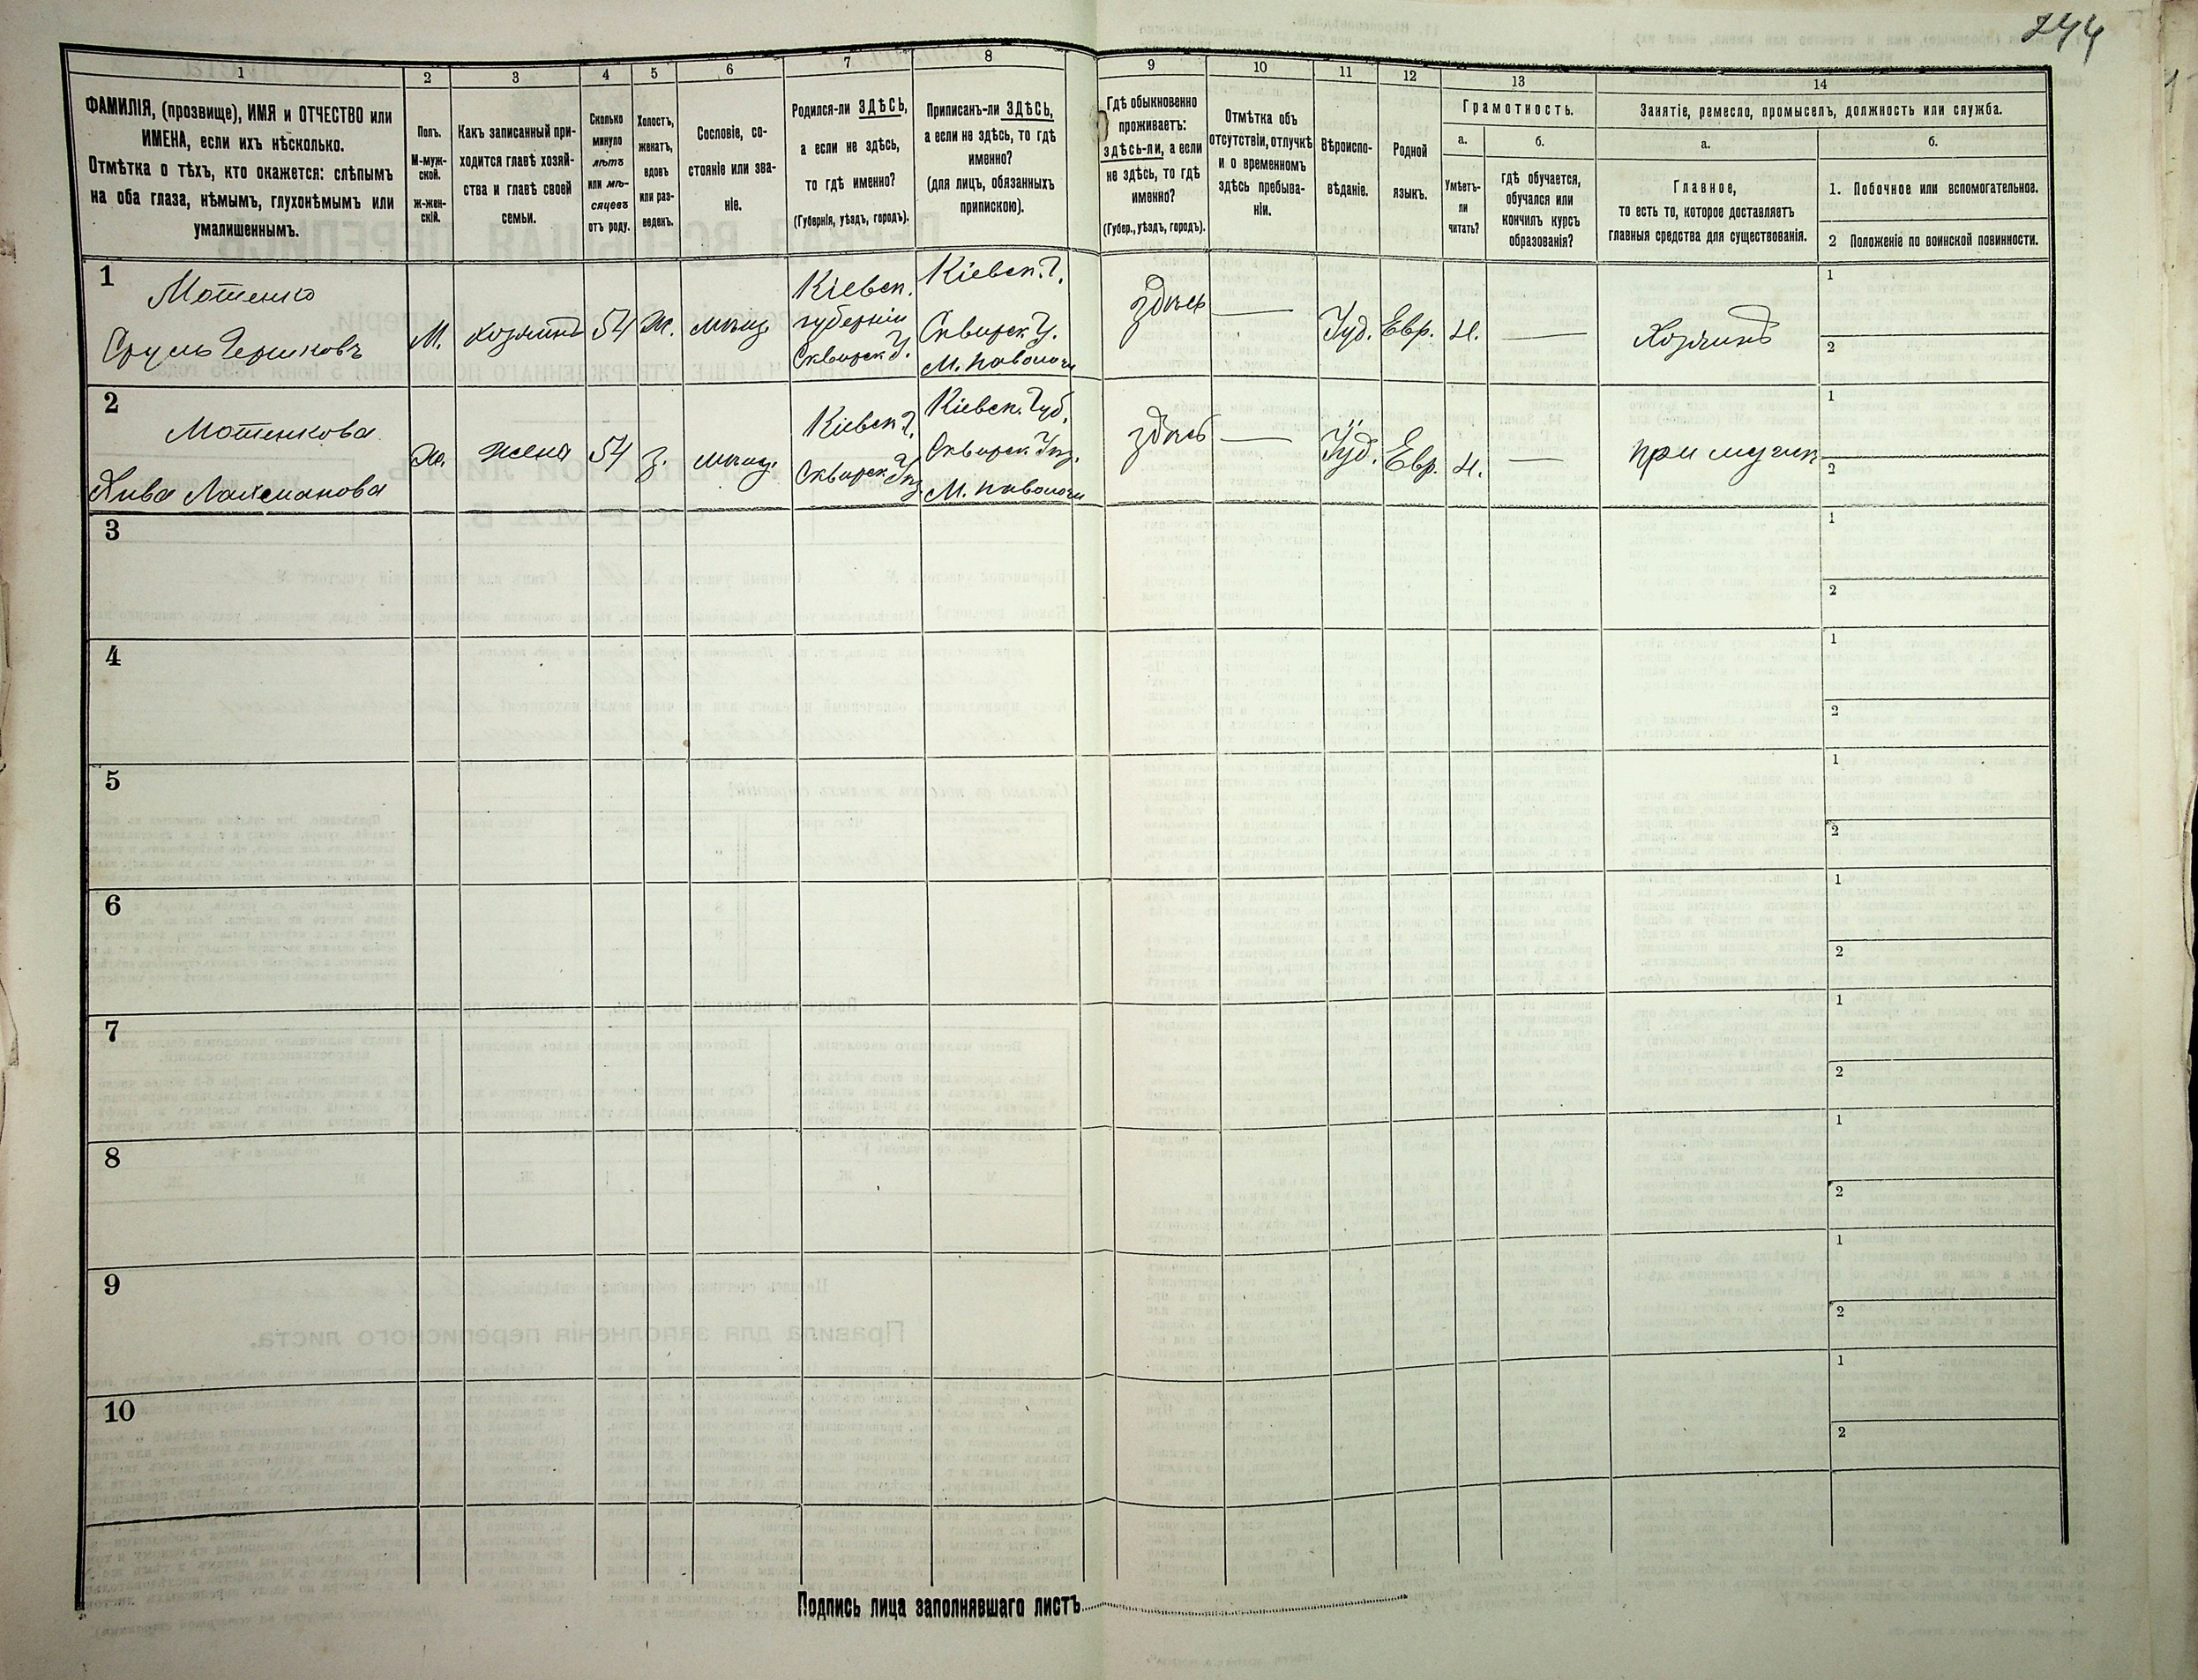 244
1
ФАМИЛІЯ, (прозвище), ИМЯ и ОТЧЕСТВО или
ИМЕНА, если ихъ нѣсколько.
Отмѣтка о тѣхъ, кто окажется: слѣпымъ
на оба глаза, нѣмымъ, глухонѣмымъ или
умалишеннымъ.
2
Полъ.
М-муж-
ской.
Ж-жен-
скій.
3
Какъ записанный при-
ходится главѣ хозяй-
ства и главѣ своей
семьи.
4
Сколько
минуло
лѣтъ
или мѣ-
сяцевъ
отъ роду.
5
Холостъ,
женатъ,
вдовъ
или раз-
веденъ.
6
Сословіе, со-
стояніе или зва-
ніе.
7
Родился-ли ЗДѢСЬ,
а если не здѣсь,
то гдѣ именно?
(Губернія, уѣздъ, городъ).
8
Приписанъ-ли ЗДѢСЬ,
а если не здѣсь, то гдѣ
именно?
(для лицъ, обязанныхъ
припискою).
9
Гдѣ обыкновенно
проживаетъ:
здѣсь-ли, а если
не здѣсь, то гдѣ
именно?
(Губер., уѣздъ, городъ).
10
Отмѣтка объ
отсутствіи, отлучкѣ
и о временномъ
здѣсь пребыва-
ніи.
11
Вѣроиспо-
вѣданіе.
12
Родной
языкъ.
13
Грамотность.
а.
Умѣетъ-
ли
читать?
б.
гдѣ обучается,
обучался или
кончилъ курсъ
образованія?
14
Занятіе, ремесло, промыселъ, должность или служба.
а.
Главное,
то есть то, которое доставляетъ
главныя средства для существованія.
б.
1. Побочное или вспомогательное.
2 Положеніе по воинской повинности.
1
Мотенко
Сруль Гершковъ
М.
хозяинъ
54
Ж.
мѣщ.
Кіевск.
губерніи
Сквирск У.
Кіевск. Г.
Сквирск У.
М. Паволочи
здѣсь
Іуд.
Евр.
Н.
Хозяинъ
1
2
2
Мотенкова
Хива Лахманова
Ж.
жена
54
З.
мѣщ.
Кіевск Г.
Сквирск. Уѣз.
Кіевск. Губ.
Сквирск Уѣз.
М. Паволочи
здѣсь
Іуд.
Евр.
Н.
при мужѣ
1
2
3
1
2
4
1
2
5
1
2
6
1
2
7
1
2
8
1
2
9
1
2
10
1
2
Подпись лица заполнявшаго листъ